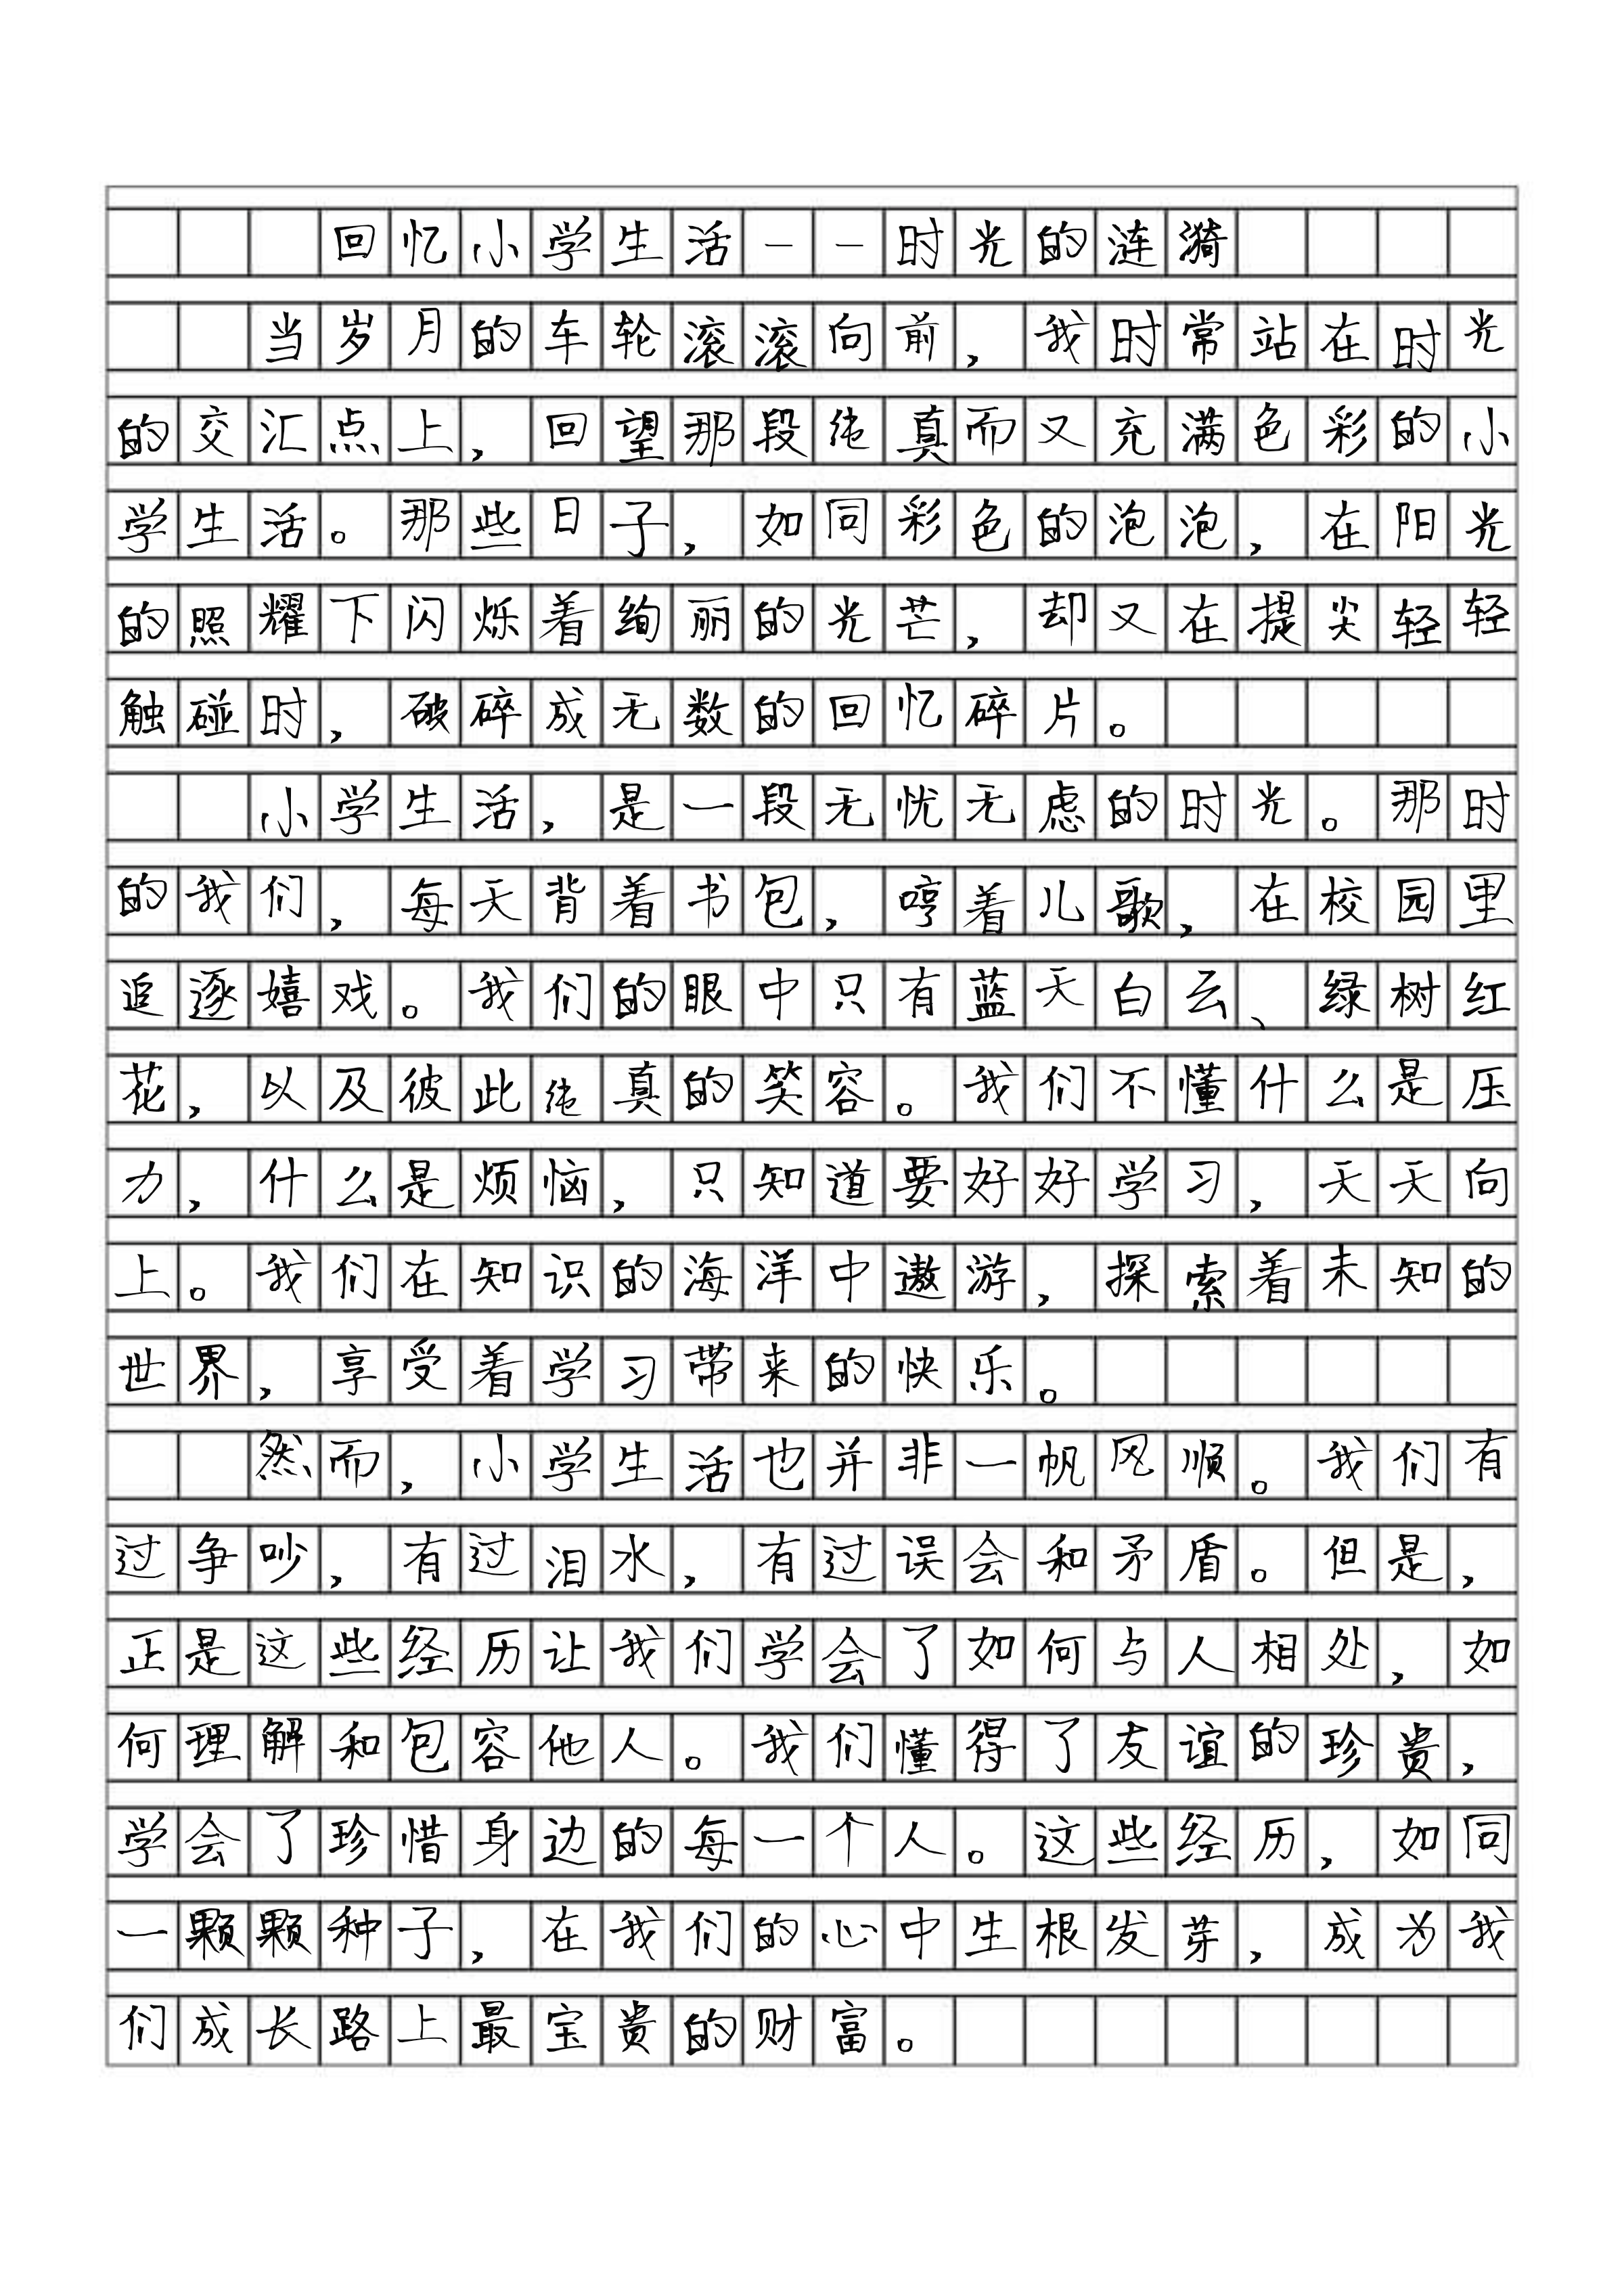 回忆小学生活——时光的涟漪
当岁月的车轮滚滚向前，我时常站在时光
的交汇点上，回望那段纯真而又充满色彩的小
学生活。那些日子，如同彩色的泡泡，在阳光
的照耀下闪烁着绚丽的光芒，却又在提尖轻轻
触碰时，破碎成无数的回忆碎片。
小学生活，是一段无忧无虑的时光。那时
的我们，每天背着书包，哼着儿歌，在校园里
追逐嬉戏。我们的眼中只有蓝天白云、绿树红
花，以及彼此纯真的笑容。我们不懂什么是压
力，什么是烦恼，只知道要好好学习，天天向
上。我们在知识的海洋中遨游，探索着未知的
世界，享受着学习带来的快乐。
然而，小学生活也并非一帆风顺。我们有
过争吵，有过泪水，有过误会和矛盾。但是，
正是这些经历让我们学会了如何与人相处，如
何理解和包容他人。我们懂得了友谊的珍贵，
学会了珍惜身边的每一个人。这些经历，如同
一颗颗种子，在我们的心中生根发芽，成为我
们成长路上最宝贵的财富。